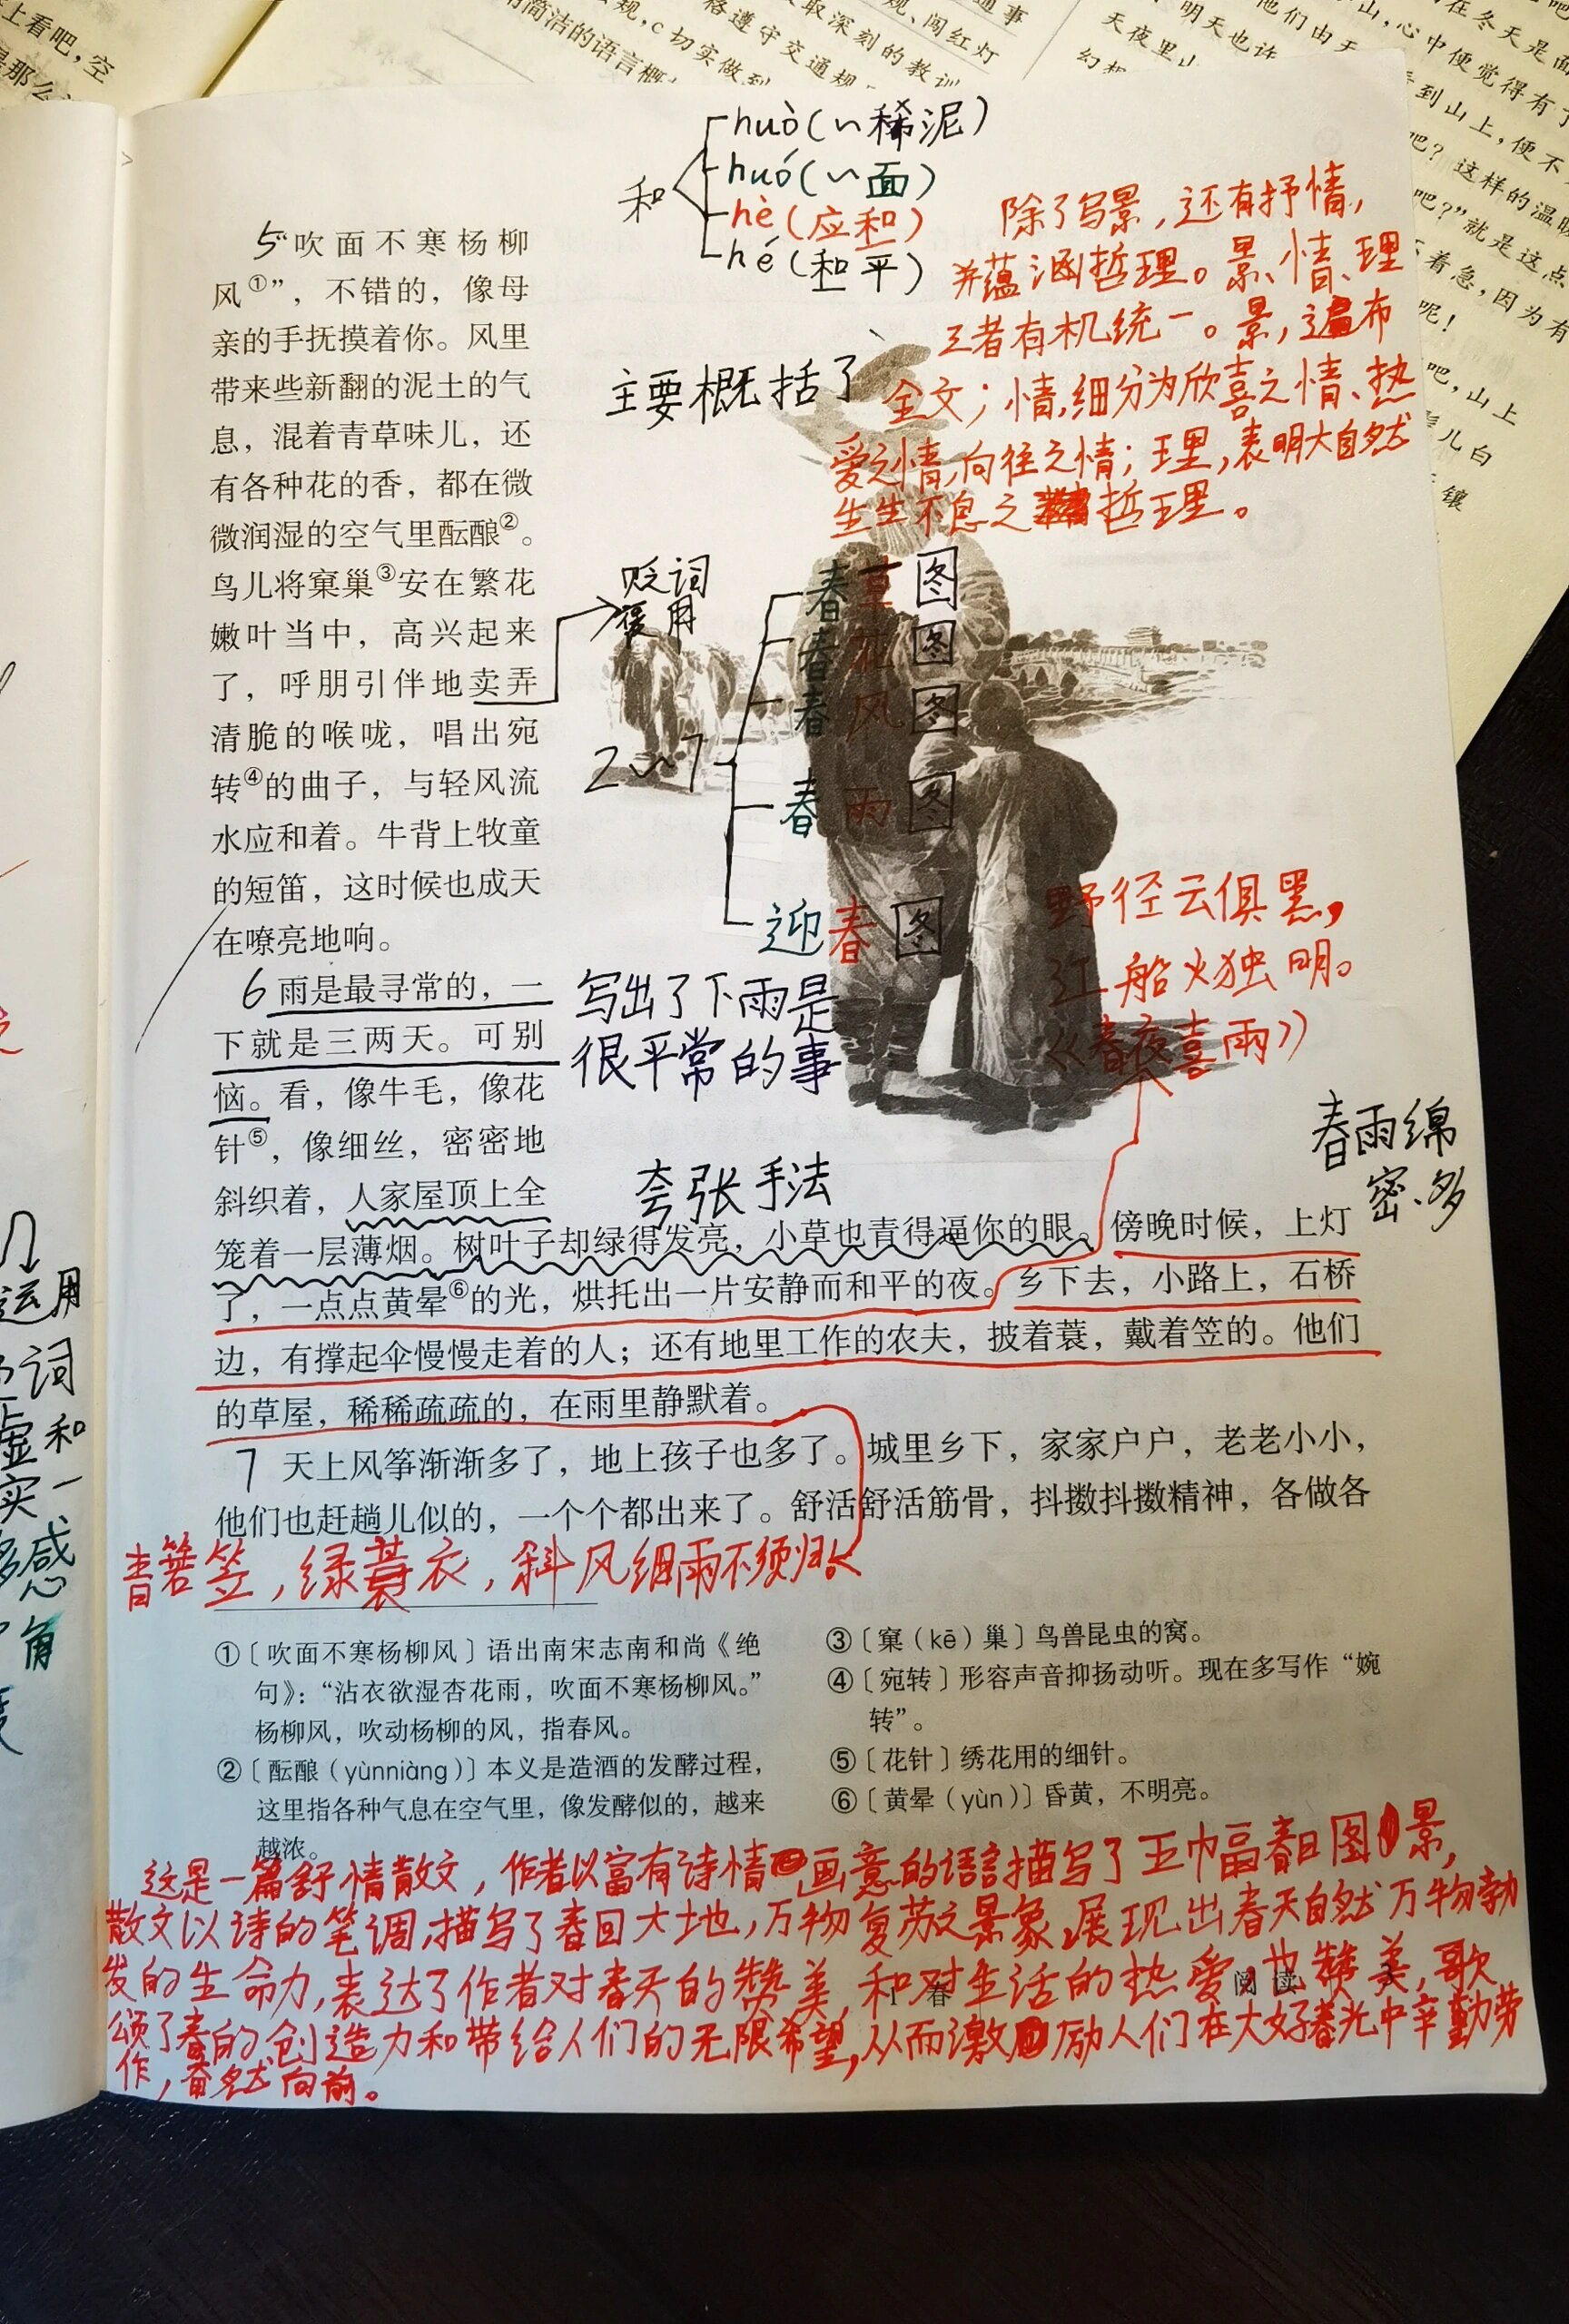 huò（~稀泥）
和 huó（~面）
hè（应和）
hé（和平）
除了写景，还有抒情，
并蕴涵哲理。景、情、理
三者有机统一。景，遍布
全文；情，细分为欣喜之情、热
爱之情，向往之情；理，表明大自然
生生不息之哲理。
主要概括了
5“吹面不寒杨柳
风①”，不错的，像母
亲的手抚摸着你。风里
带来些新翻的泥土的气
息，混着青草味儿，还
有各种花的香，都在微
微润湿的空气里酝酿②。
鸟儿将窠巢③安在繁花
嫩叶当中，高兴起来
了，呼朋引伴地卖弄
清脆的喉咙，唱出宛
转④的曲子，与轻风流
水应和着。牛背上牧童
的短笛，这时候也成天
在嘹亮地响。
贬词
褒用
2~7
春草图
春花图
春风图
春雨图
迎春图
野径云俱黑，
江船火独明。
《春夜喜雨》
6 雨是最寻常的，一
下就是三两天。可别
恼。看，像牛毛，像花
针⑤，像细丝，密密地
斜织着，人家屋顶上全
写出了下雨是
很平常的事
夸张手法
春雨绵
密、多
笼着一层薄烟。树叶子却绿得发亮，小草也青得逼你的眼。傍晚时候，上灯
了，一点点黄晕⑥的光，烘托出一片安静而和平的夜。乡下去，小路上，石桥
边，有撑起伞慢慢走着的人；还有地里工作的农夫，披着蓑，戴着笠的。他们
的草屋，稀稀疏疏的，在雨里静默着。
7 天上风筝渐渐多了，地上孩子也多了。城里乡下，家家户户，老老小小，
他们也赶趟儿似的，一个个都出来了。舒活舒活筋骨，抖擞抖擞精神，各做各
青箬笠，绿蓑衣，斜风细雨不须归
①〔吹面不寒杨柳风〕语出南宋志南和尚《绝
句》：“沾衣欲湿杏花雨，吹面不寒杨柳风。”
杨柳风，吹动杨柳的风，指春风。
②〔酝酿（yùnniàng）〕本义是造酒的发酵过程，
这里指各种气息在空气里，像发酵似的，越来
越浓。
③〔窠（kē）巢〕鸟兽昆虫的窝。
④〔宛转〕形容声音抑扬动听。现在多写作“婉
转”。
⑤〔花针〕绣花用的细针。
⑥〔黄晕（yùn）〕昏黄，不明亮。
这是一篇舒情散文，作者以富有诗情画意的语言描写了五巾畐春日图景，
散文以诗的笔调，描写了春回大地，万物复苏之景象，展现出春天自然万物勃
发的生命力，表达了作者对春天的赞美，和对生活的热爱，也赞美，歌
颂了春的创造力和带给人们的无限希望，从而激励人们在大好春光中辛勤劳
作，奋然向前。
1 春
阅读
运用
词
虚和
实一
感
角
上看吧，空
是那么
用简洁的语言概
规，c切实做到
格遵守交通规
取深刻的教训
规、闯红灯
通事
天夜里
明天也许
他们由天
山，心中便觉得有了
在冬天是面
看到山上，便不
吧？这样的温暖
吧？”就是这点
着急，因为有
呢！
吧，山上
儿白
镶